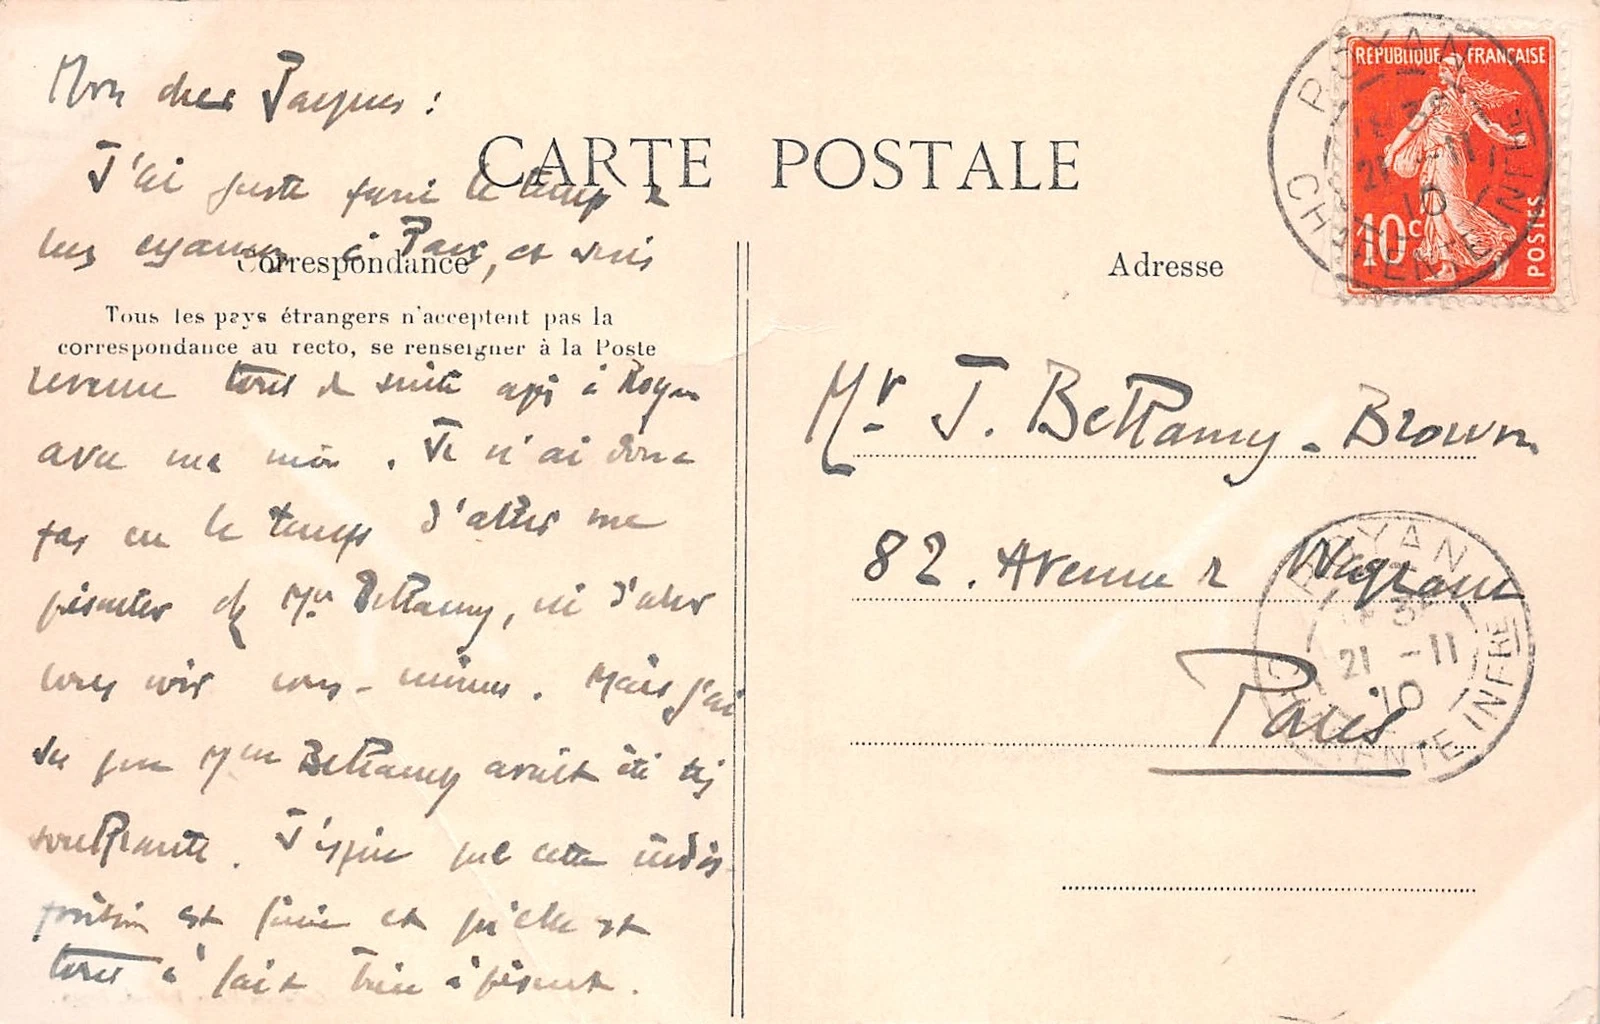 Mon cher Jacques :
CARTE POSTALE
J'ai juste le temps
mes examens à Paris, et suis
Correspondance
Tous les pays étrangers n'acceptent pas la
correspondance au recto, se renseigner à la Poste
revenue tout de suite après à Royan
avec ma mère. Je n'ai donc
pas eu le temps d'aller me
présenter chez Mme Bellamy, ni d'aller
vous voir vous-même. Mais j'ai
su que Mme Bellamy avait été très
souffrante. J'espère que cette indis-
position est finie et qu'elle est
tout à fait bien à présent.
RÉPUBLIQUE FRANÇAISE
10c
POSTES
ROYAN
21 - 11
10
CHARENTE INFRE
Adresse
Mr J. Bellamy-Brown
82. Avenue de Wagram
Paris
ROYAN
21 - 11
10
CHARENTE INFRE